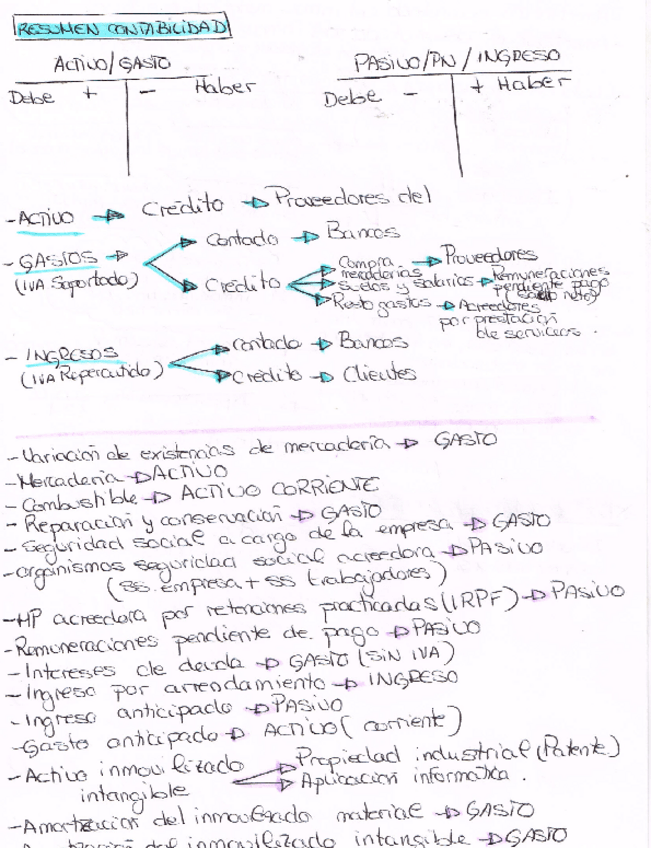 RESUMEN CONTABILIDAD
ACTIVO/GASTO
PASIVO/PN/INGRESO
Debe + - Haber
Debe - + Haber
- ACTIVO → Crédito → Proveedores del
- GASTOS →
(IVA Soportado)
Contado → Bancos
Crédito
Compra mercaderías → Proveedores
Sueldos y salarios → Remuneraciones pendiente pago
Resto gastos → Acreedores
por prestación
de servicios.
- INGRESOS
(IVA Repercutido)
contado → Bancos
Crédito → Clientes
- Variación de existencias de mercadería → GASTO
- Mercadería → ACTIVO
- Combustible → ACTIVO CORRIENTE
- Reparación y conservación → GASTO
- Seguridad social a cargo de la empresa → GASTO
- organismos seguridad social acreedora → PASIVO
(ss. empresa + ss trabajadores)
- HP acreedora por retenciones practicadas (IRPF) → PASIVO
- Remuneraciones pendiente de pago → PASIVO
- Intereses de deuda → GASTO (SIN IVA)
- Ingreso por arrendamiento → INGRESO
- Ingreso anticipado → PASIVO
- Gasto anticipado → ACTIVO (corriente)
- Activo inmovilizado
intangible
Propiedad industrial (Patente)
Aplicacion informatica.
- Amortización del inmovilizado material → GASTO
del inmovilizado intangible → GASTO